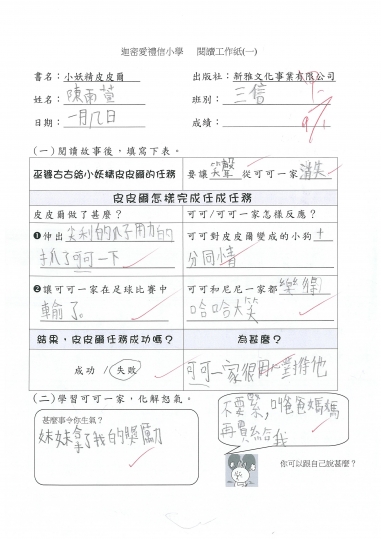 迦密愛禮信小學 閱讀工作紙(一)
書名：小妖精皮皮爾 出版社：新雅文化事業有限公司
姓名：陳雨萱 班別：三信
日期：一月八日 成績：
(一) 閱讀故事後，填寫下表。
巫婆古古給小妖精皮皮爾的任務 要讓笑聲從可可一家消失
皮皮爾怎樣完成任成任務
皮皮爾做了甚麼？ 可可/可可一家怎樣反應？
❶伸出尖利的爪子用力的 可可對皮皮爾變成的小狗十
抓了可可一下 分同情
❷讓可可一家在足球比賽中 可可和尼尼一家都樂得
輸了。 哈哈大笑
結果，皮皮爾任務成功嗎？ 為甚麼？
成功 / 失敗 可可一家很用心對待他
(二) 學習可可一家，化解怒氣。
甚麼事令你生氣？
妹妹拿了我的獎勵
不要緊，叫爸爸媽媽
再買給我
你可以跟自己說甚麼？